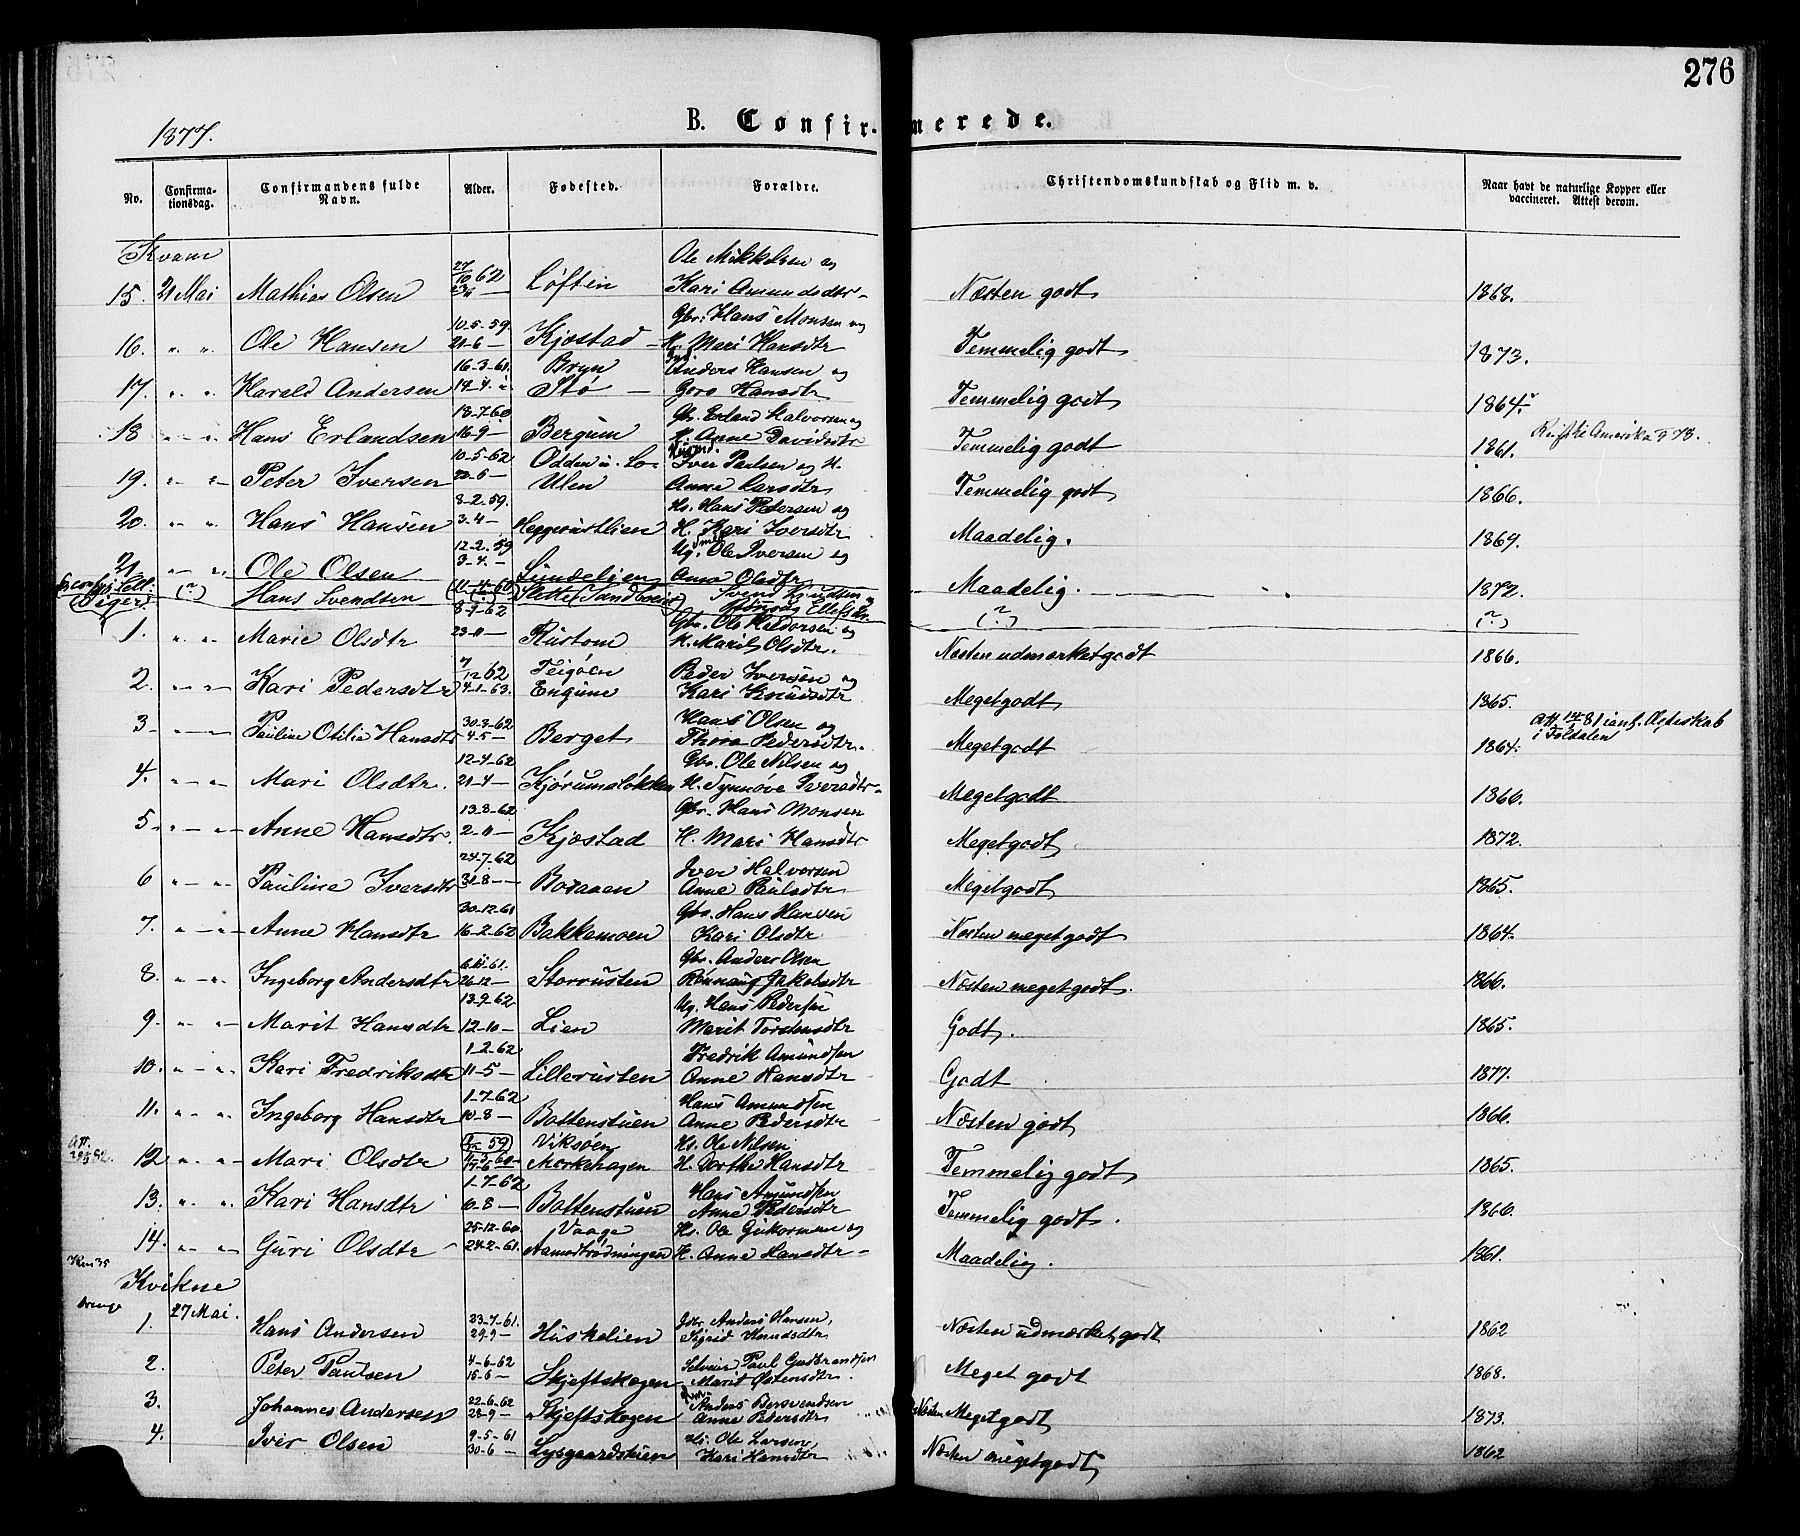 276
1877.
B. Confirmerede.
No. Confirmationsdag. Confirmandens fulde Navn. Alder. Fødested. Forældre. Christendomskundskab og Flid m. v. Naar havt de naturlige Kopper eller vaccineret. Attest derom.
Kvam
27/10 62 Ole Mikkelsen og
15. 21 Mai Mathias Olsen Løftin Kari Amundsdtr Næsten godt 1868.
10-5-59. Gbr. Hans Monsen og
16. " " Ole Hansen 21-6 — Kjøstad H. Mari Hansdtr Temmelig godt 1873.
16-3-61. Bryn Anders Hansen og
17. " " Harald Andersen 14-4. " Stø Goro Hansdtr Temmelig godt 1864.
18-7-60 Gbr. Erland Halvorsen og
18 " " Hans Erlandsen 16-9 — Bergum H. Anne Davidsdtr Temmelig godt 1861. Reist til Amerika
10-5-62 Odden u. Lo- Iver Paulsen og H.
19. " " Peter Iversen 22-6 — Ulen Anne Larsdtr Temmelig godt 1866.
8-2-59. Hs. Hans Petersen og
20. " " Hans Hansen 3-4 — Heggerustlien H. Kari Iversdtr Maadelig. 1869.
12-2-59 Ug. Ole Iversen og
21 " " Ole Olsen 3-4. — Sundelien Anna Olsdtr Maadelig. 1872.
(?) Hans Svendsen Slette (Sandboeiet) Svend Knudsen og Rønnaug Ellefsdtr. (?) (?)
(Piger)
8-9-62 Gbr. Ole Halvorsen og
1. " " Marie Olsdtr 23-11 — Rustom H. Marit Olsdtr. Næsten udmærketgodt 1866.
7/12 62 Teigøen Peder Iversen og
2. " " Kari Pedersdtr 4-1-63. Engum Kari Knudsdtr Megetgodt 1865.
30-3-62 Hans Olsen og
3 " " Pauline Otilia Hansdtr 4-5 — Berget Thora Pedersdtr. Megetgodt 1864. Att. 14/8 81 ianl. Ægteskab i Foldalen
12-4-62 Gbr. Ole Nilsen og
4. " " Mari Olsdtr. 21-4 — Kjørumsløkken H. Synnøve Iversdtr Megetgodt 1866.
13-8-62 Gbr. Hans Monsen
5 " " Anne Hansdtr. 2-11 — Kjøstad H. Mari Hansdtr Megetgodt 1872.
24-7-62 Iver Halvorsen
6 " " Pauline Iversdtr 31-8 — Anne Paulsdtr Megetgodt 1865.
30-12-61 Gbr. Hans Hansen
7. " " Anne Hansdtr 16-2-62 Bakkemoen Kari Olsdtr Næsten megetgodt 1864.
Gbr. Anders Olsen
8. " " Ingeborg Andersdtr 26-12 — Storrusten Rønnaug Jakobsdtr Næsten megetgodt. 1866.
13-9-62 Ug. Hans Pedersen
9. " " Marit Hansdtr 12-10 — Lien Marit Torstensdtr Godt. 1865.
1-2-62 Fredrik Amundsen
10. " " Kari Fredriksdtr 11-5 — Lillerusten Anne Hansdtr Godt 1877.
1-7-62 Hans Amundsen
11. " " Ingeborg Hansdtr 10-8 — Bottenstuen Anne Pedersdtr Næsten godt 1866.
59 Viksøen Hs. Ole Nilsen
12 " " Mari Olsdtr Mørkshagen H. Dorthe Hansdtr Temmelig godt 1865.
1-7-62 Hans Amundsen
13. " " Kari Hansdtr 10-8 — Bottenstuen Anne Pedersdtr Temmelig godt. 1866
25-12-60 Vaage Hs. Ole Guttormsen og
14. " " Guri Olsdtr 24-2-61. Aamodtrødningen H. Anne Hansdtr Maadelig. 1861.
Kvikne
Drenge 27 Mai. 23-7-61. Gbr. Anders Hansen,
1. Hans Andersen 29-9 — Huskelien Sigrid Knudsdtr Næsten udmærket godt 1862
4-6-62 Selveier Paul Gudbrandsen
2. Peter Paulsen 15-6 — Skjeftskogen Marit Østensdtr. Meget godt 1868.
22-6-62 Anders Bersvendsen
3. Johannes Andersen 28-9 — Skjeftskogen Anne Pedersdtr Næsten Megetgodt 1873.
9-5-61 Hs. Ole Larsen
4. Iver Olsen 30-6 — Lysgaardstuen Kari Hansdtr Næsten megetgodt 1862